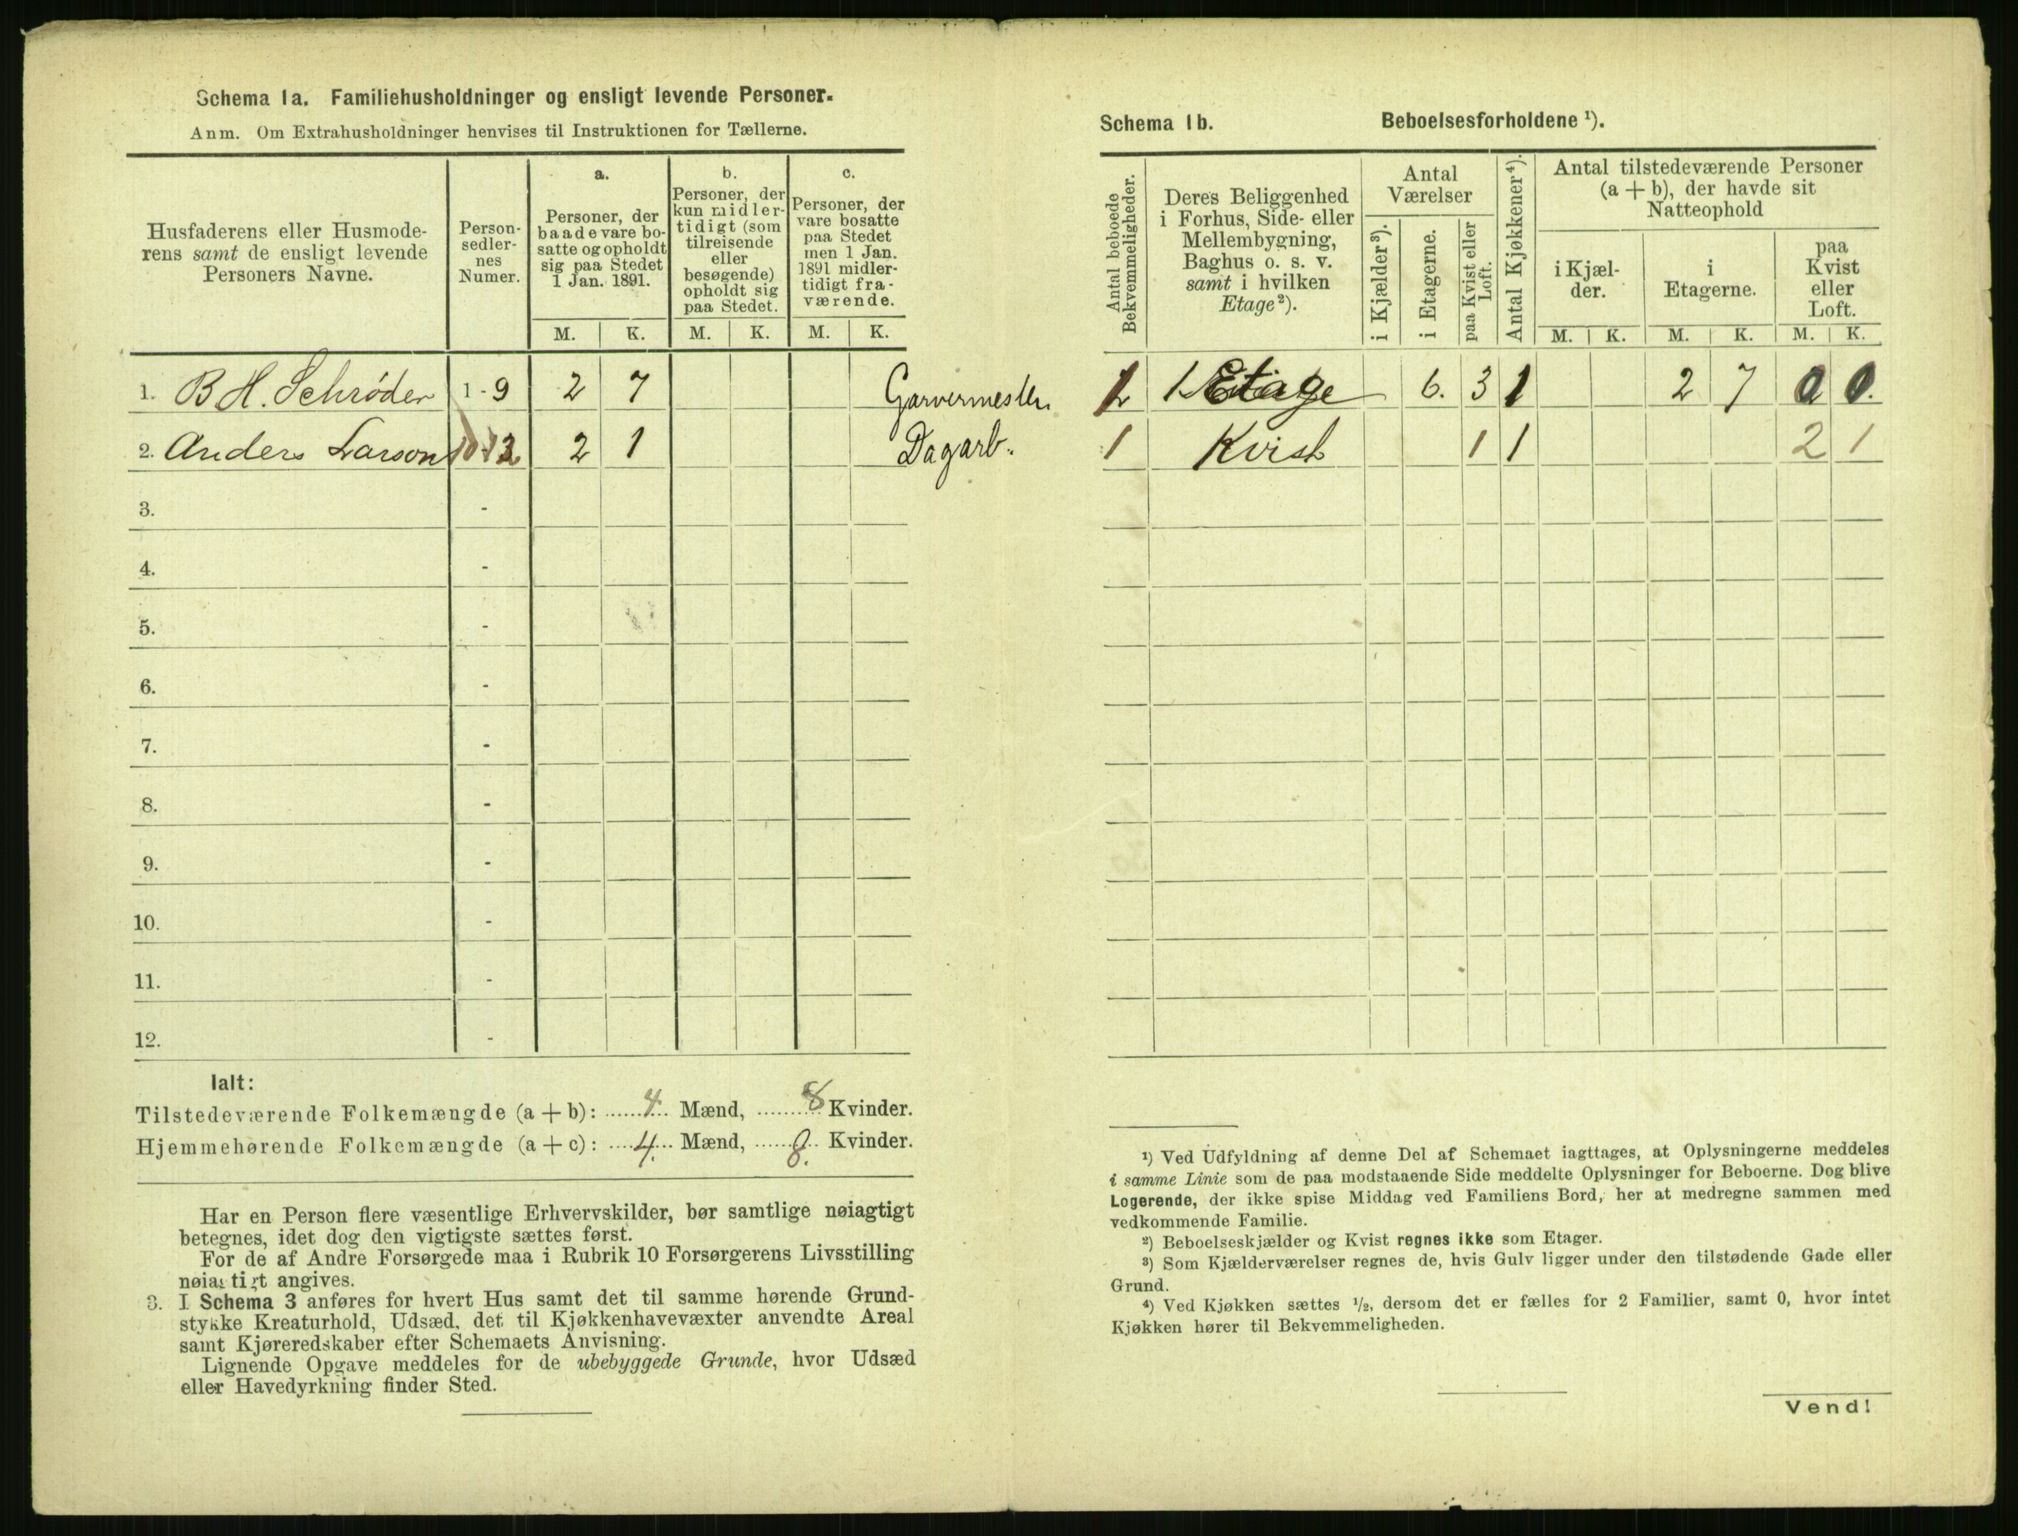 Schema 1a. Familiehusholdninger og ensligt levende Personer.
Anm. Om Extrahusholdninger henvises til Instruktionen for Tællerne.
Husfaderens eller Husmode-
rens samt de ensligt levende
Personers Navne.
Person-
sedler-
nes
Numer.
a.
Personer, der
baade vare bo-
satte og opholdt
sig paa Stedet
1 Jan. 1891.
b.
Personer, der
kun midler-
tidigt (som
tilreisende
eller
besøgende)
opholdt sig
paa Stedet.
c.
Personer, der
vare bosatte
paa Stedet
men 1 Jan.
1891 midler-
tidigt fra-
værende.
M. K. M. K. M. K.
1. B H. Schrøder 1 - 9 2 7 Garvermester
2. Anders Larson 10-12 2 1 Dagarb.
3. -
4. -
5. -
6. -
7. -
8. -
9. -
10. -
11. -
12. -
Ialt:
Tilstedeværende Folkemængde (a + b): 4 Mænd, 8 Kvinder.
Hjemmehørende Folkemængde (a + c): 4. Mænd, 8. Kvinder.
Har en Person flere væsentlige Erhvervskilder, bør samtlige nøiagtigt
betegnes, idet dog den vigtigste sættes først.
For de af Andre Forsørgede maa i Rubrik 10 Forsørgerens Livsstilling
nøiagtigt angives.
3. I Schema 3 anføres for hvert Hus samt det til samme hørende Grund-
stykke Kreaturhold, Udsæd, det til Kjøkkenhavevæxter anvendte Areal
samt Kjøreredskaber efter Schemaets Anvisning.
Lignende Opgave meddeles for de ubebyggede Grunde, hvor Udsæd
eller Havedyrkning finder Sted.
Schema 1b. Beboelsesforholdene ¹).
Antal beboede
Bekvemmeligheder.
Deres Beliggenhed
i Forhus, Side- eller
Mellembygning,
Baghus o. s. v.
samt i hvilken
Etage²).
Antal
Værelser
i Kjælder³).
i Etagerne.
paa Kvist eller
Loft.
Antal Kjøkkener⁴).
Antal tilstedeværende Personer
(a + b), der havde sit
Natteophold
i Kjæl-
der.
i
Etagerne.
paa
Kvist
eller
Loft.
M. K. M. K. M. K.
1 Etage 6. 3 1 2 7 0 0.
1 Kvist 1 1 2 1
¹) Ved Udfyldning af denne Del af Schemaet iagttages, at Oplysningerne meddeles
i samme Linie som de paa modstaaende Side meddelte Oplysninger for Beboerne. Dog blive
Logerende, der ikke spise Middag ved Familiens Bord, her at medregne sammen med
vedkommende Familie.
²) Beboelseskjælder og Kvist regnes ikke som Etager.
³) Som Kjælderværelser regnes de, hvis Gulv ligger under den tilstødende Gade eller
Grund.
⁴) Ved Kjøkken sættes ½, dersom det er fælles for 2 Familier, samt 0, hvor intet
Kjøkken hører til Bekvemmeligheden.
Vend!